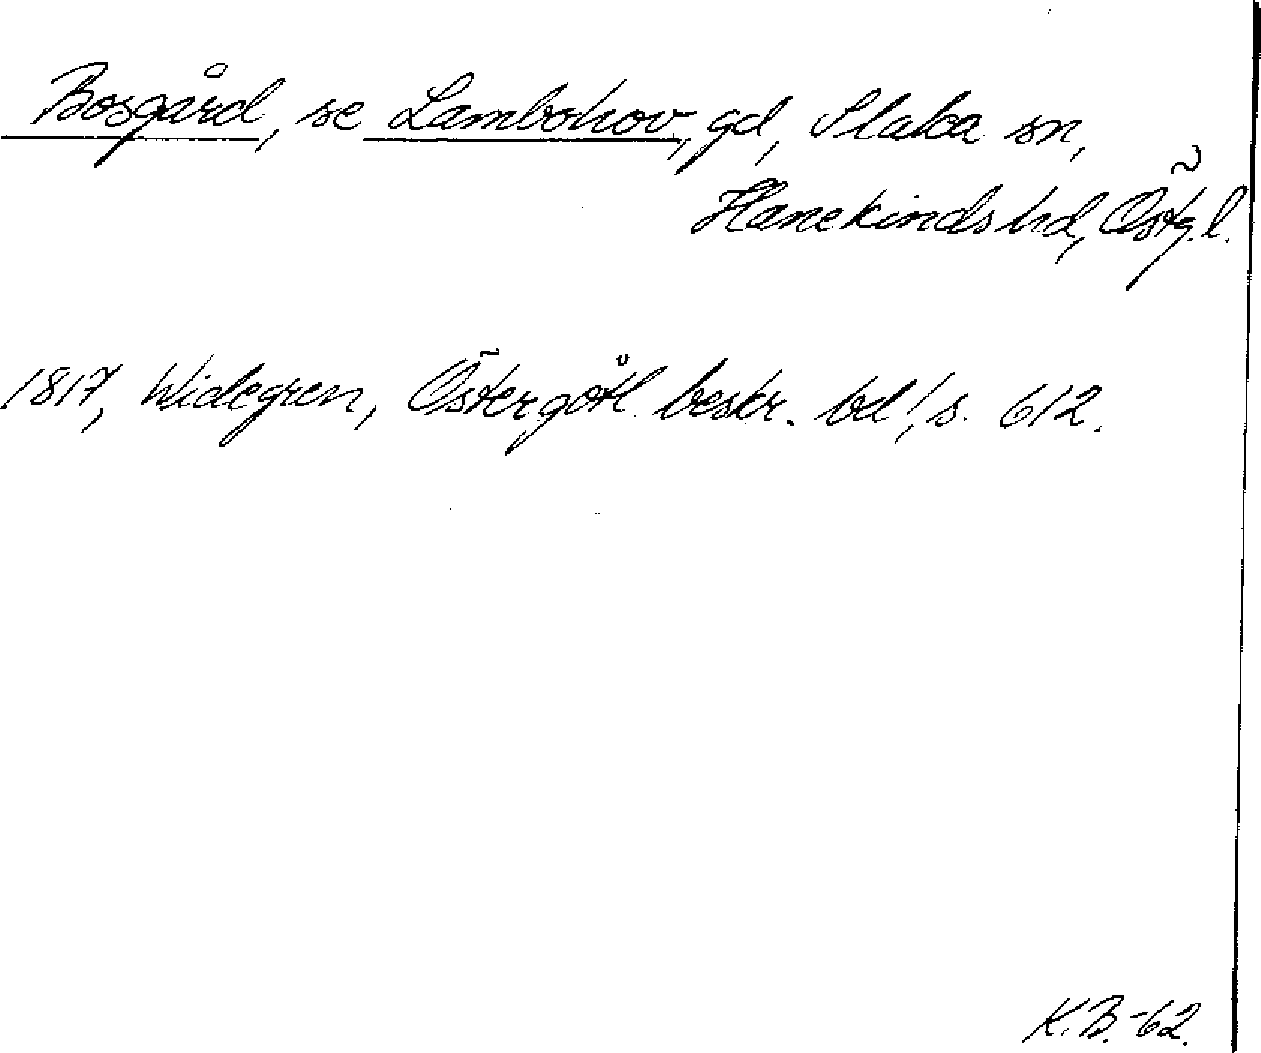 Bosgård, se Lambohov, gd, Slaka sn,
Hanekinds hd, Östg. l.
1817, Widegren, Östergötl. beskr. bd 1, s. 612.
K.B.-62.